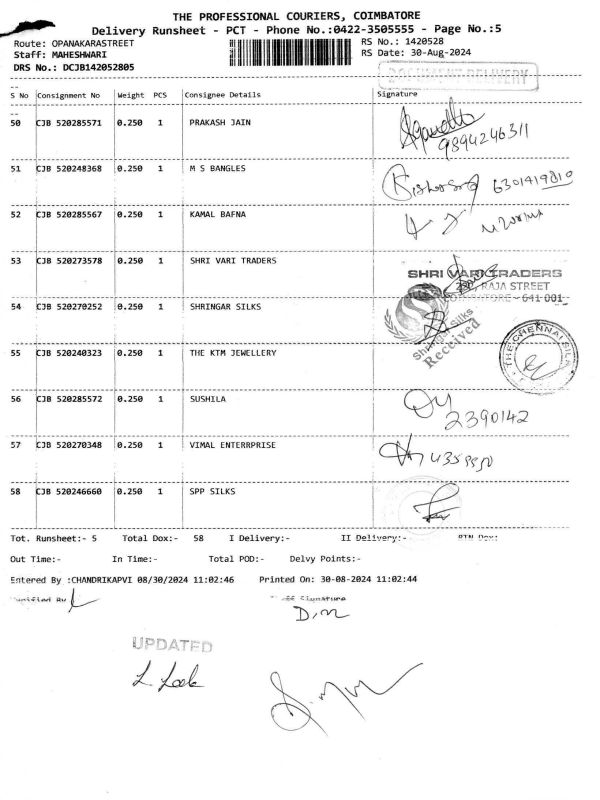 THE PROFESSIONAL COURIERS, COIMBATORE
Delivery Runsheet - PCT - Phone No.:0422-3505555 - Page No.:5
Route: OPANAKARASTREET RS No.: 1420528
Staff: MAHESHWARI RS Date: 30-Aug-2024
DRS No.: DCJB142052805
DOCUMENT DELIVERY
S No Consignment No Weight PCS Consignee Details Signature
50 CJB 520285571 0.250 1 PRAKASH JAIN
9894246311
51 CJB 520248368 0.250 1 M S BANGLES
6301419810
52 CJB 520285567 0.250 1 KAMAL BAFNA
53 CJB 520273578 0.250 1 SHRI VARI TRADERS
SHRI VARI TRADERS
RAJA STREET
COIMBATORE - 641 001
54 CJB 520270252 0.250 1 SHRINGAR SILKS
Shringar Silks
Received
THE CHENNAI SILK
55 CJB 520240323 0.250 1 THE KTM JEWELLERY
56 CJB 520285572 0.250 1 SUSHILA
2390142
57 CJB 520270348 0.250 1 VIMAL ENTERRPRISE
58 CJB 520246660 0.250 1 SPP SILKS
Tot. Runsheet:- 5 Total Dox:- 58 I Delivery:- II Delivery:- RTN Dox:
Out Time:- In Time:- Total POD:- Delvy Points:-
Entered By :CHANDRIKAPVI 08/30/2024 11:02:46 Printed On: 30-08-2024 11:02:44
Verified By Staff Signature
UPDATED